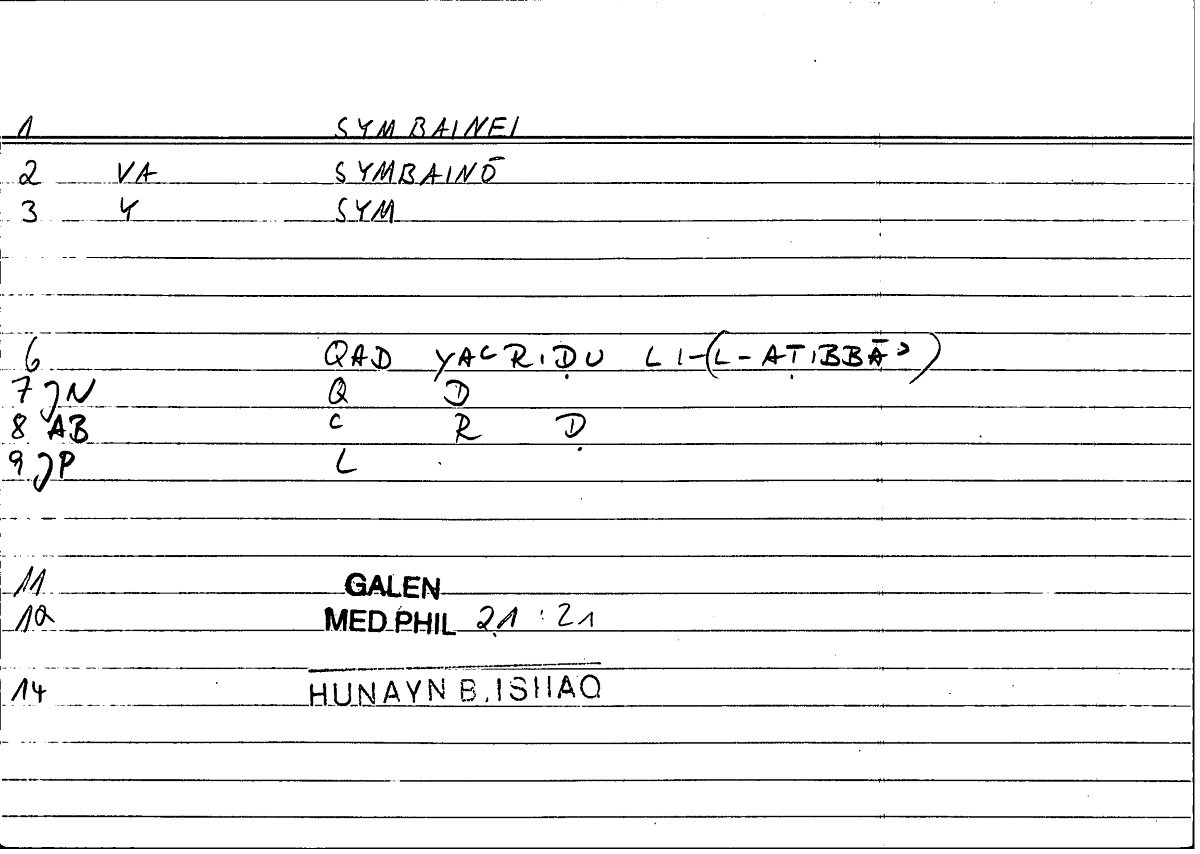 1 SYMBAINEI
2 VA SYMBAINŌ
3 Y SYM
6 QAD YAᶜRIḌU LI-(L-AṬIBBĀᵓ)
7 JN Q D
8 AB C R Ḍ
9 JP L
11 GALEN
12 MED PHIL 21:21
14 HUNAYN B. ISHAQ